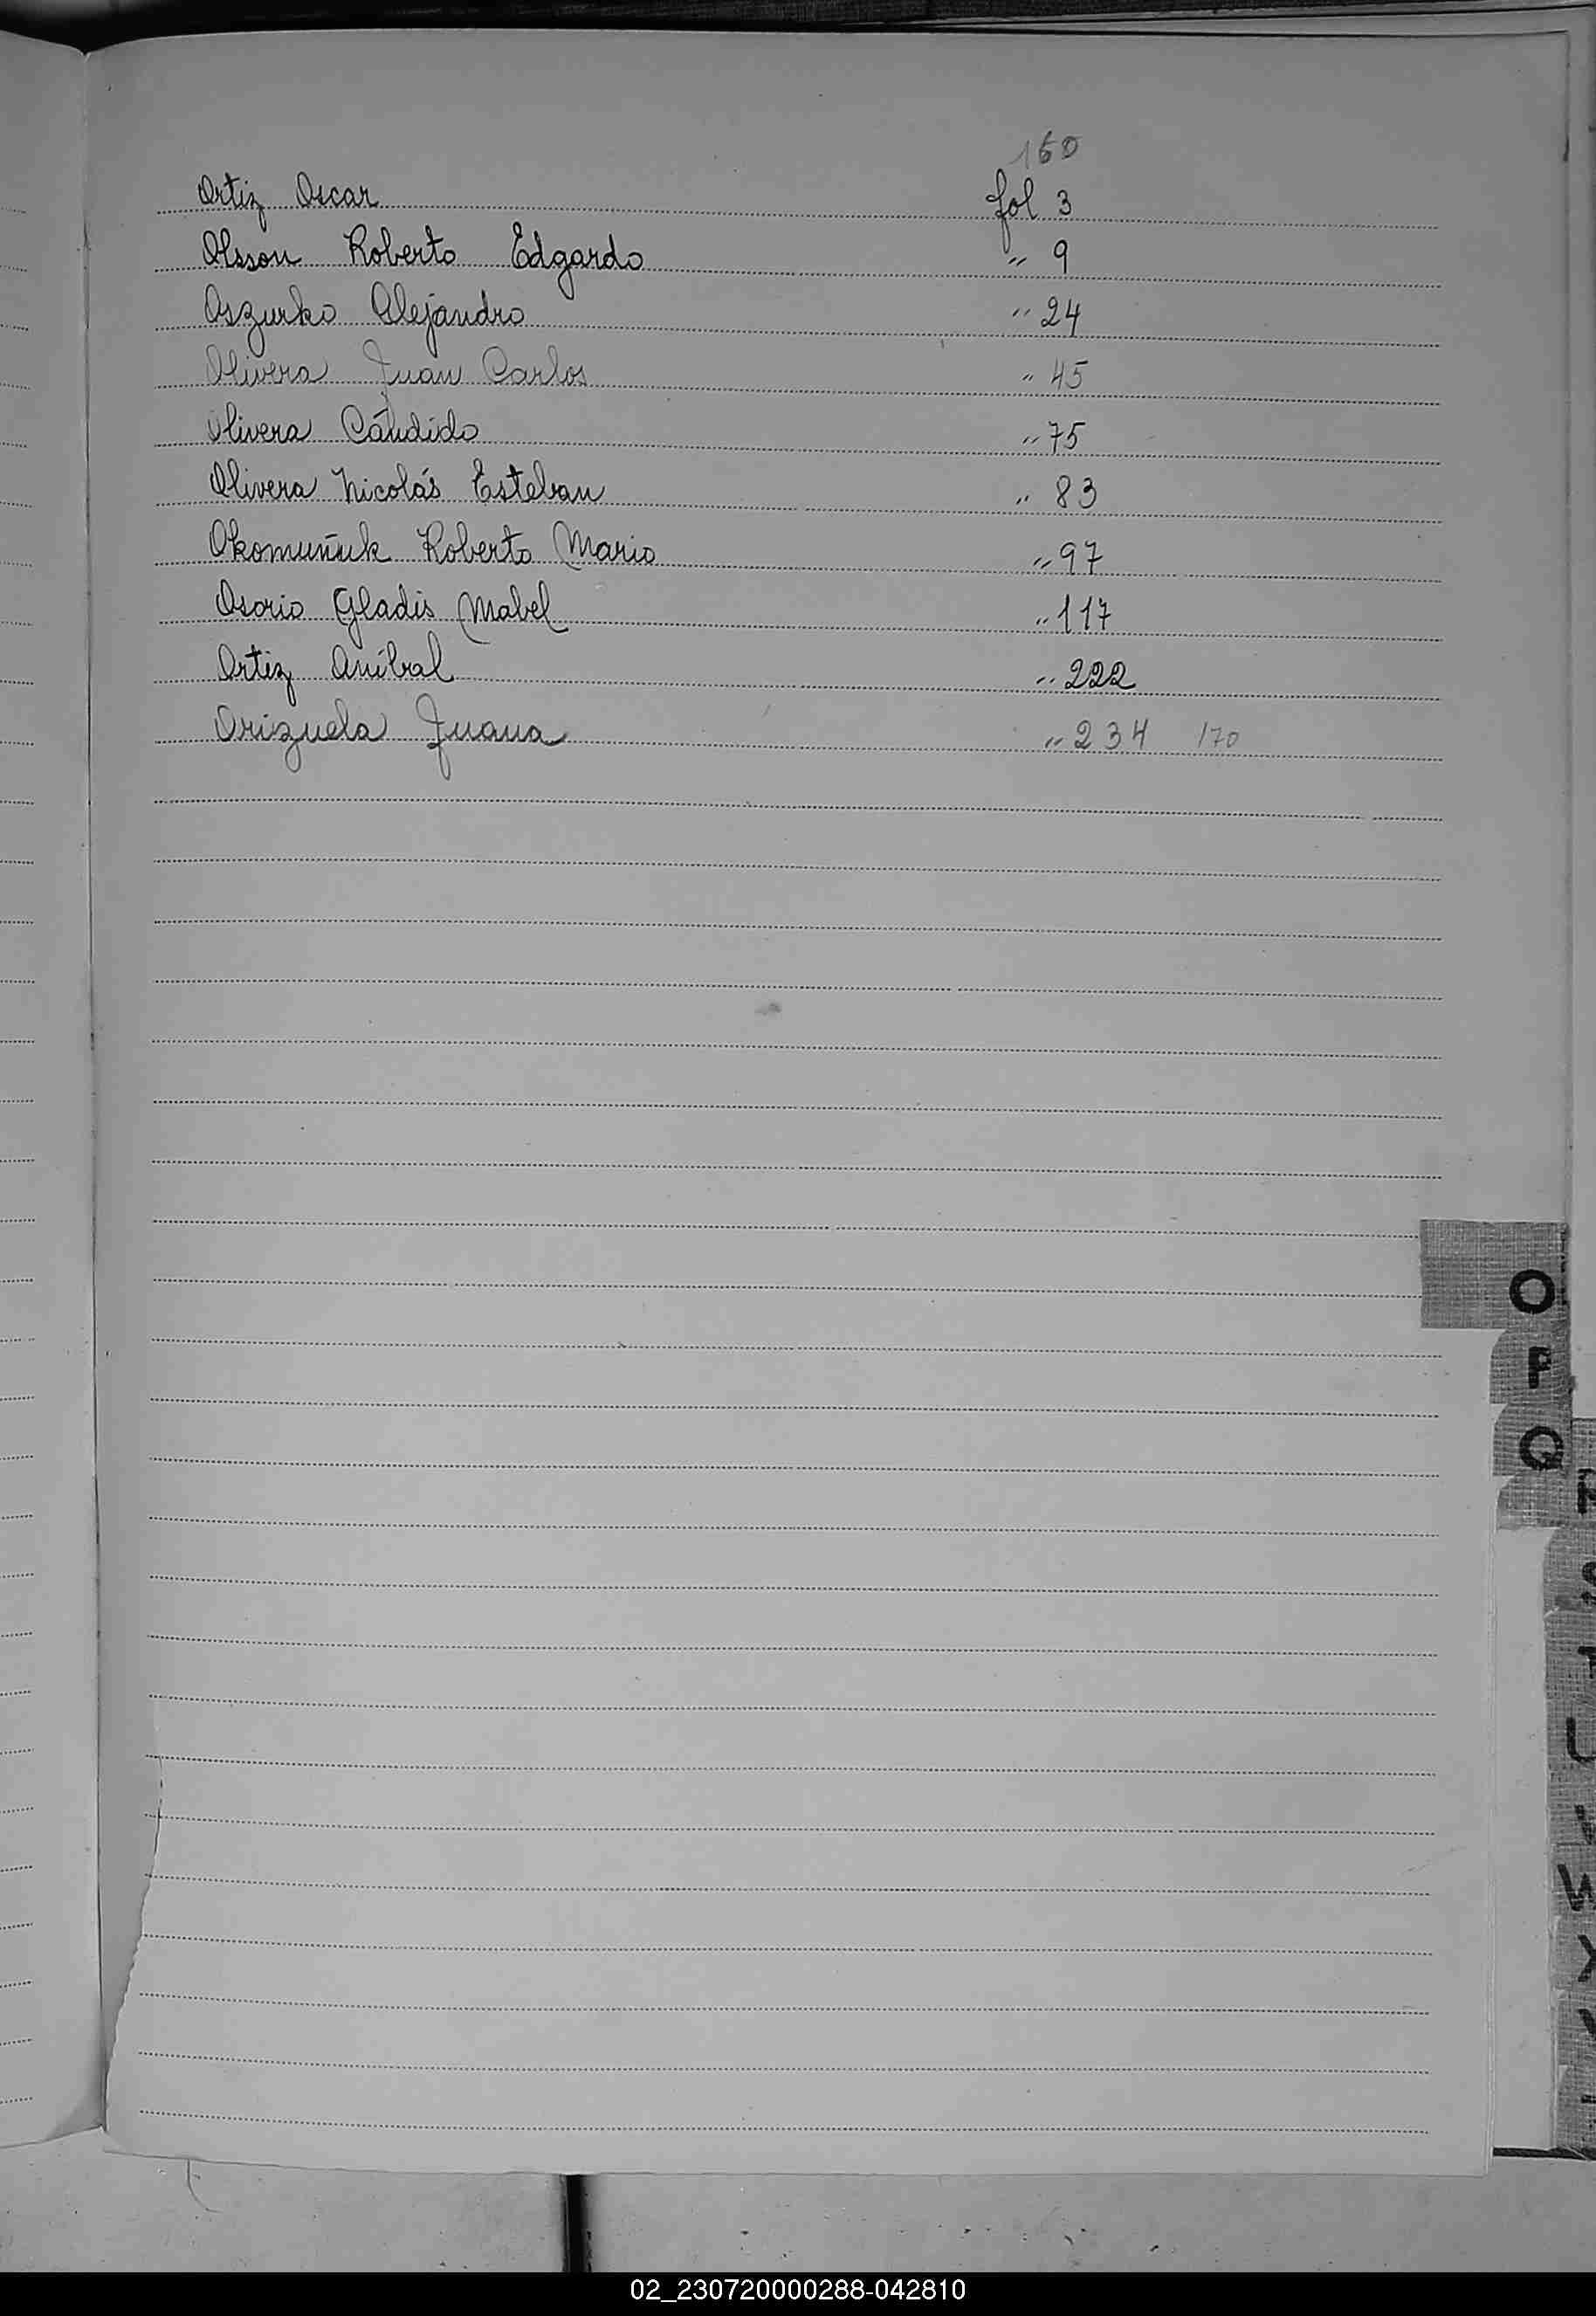 160
Ortiz Oscar fol 3
Olsson Roberto Edgardo " 9
Oszurko Alejandro " 24
Olivera Juan Carlos " 45
Olivera Cándido " 75
Olivera Nicolás Esteban " 83
Okomuñuk Roberto Mario " 97
Osorio Gladis Mabel " 117
Ortiz Aníbal " 222
Orizuela Juana " 234 170
O
P
Q
R
S
T
U
V
W
X
Y
02_230720000288-042810